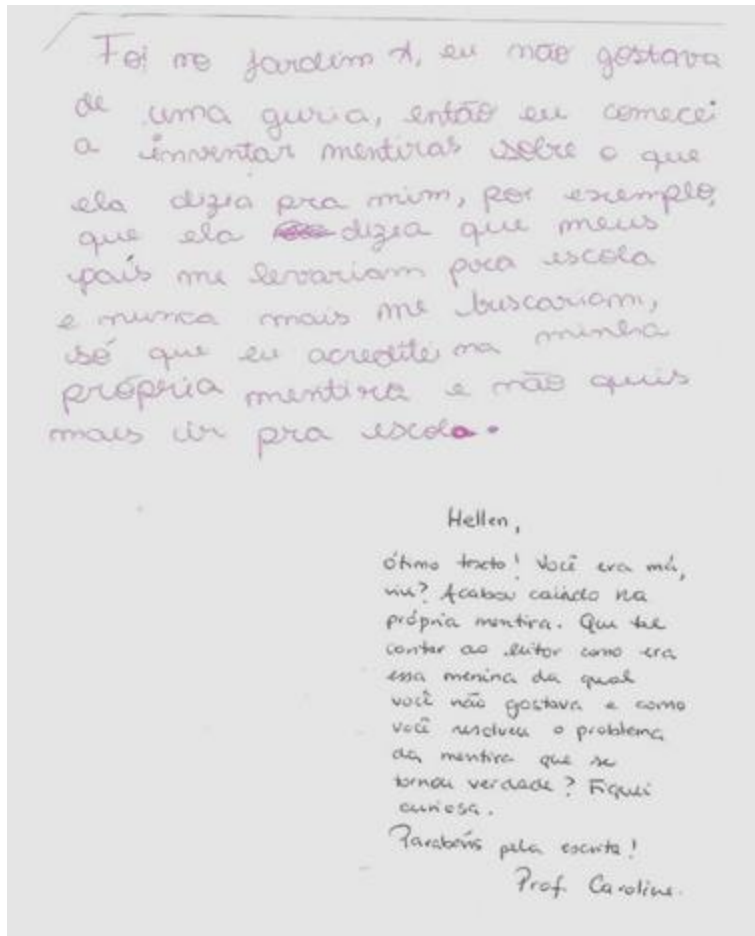 Foi no jardim A, eu não gostava
de uma guria, então eu comecei
a inventar mentiras sobre o que
ela dizia pra mim, por exemplo,
que ela dizia que meus
pais me levariam pra escola
e nunca mais me buscariam,
só que eu acreditei na minha
própria mentira e não quis
mais ir pra escola.
Hellen,
ótimo texto! Você era má,
viu? Acabou caindo na
própria mentira. Que tal
contar ao leitor como era
essa menina da qual
você não gostava e como
você resolveu o problema
da mentira que se
tornou verdade? Fiquei
curiosa.
Parabéns pela escrita!
Prof. Caroline.